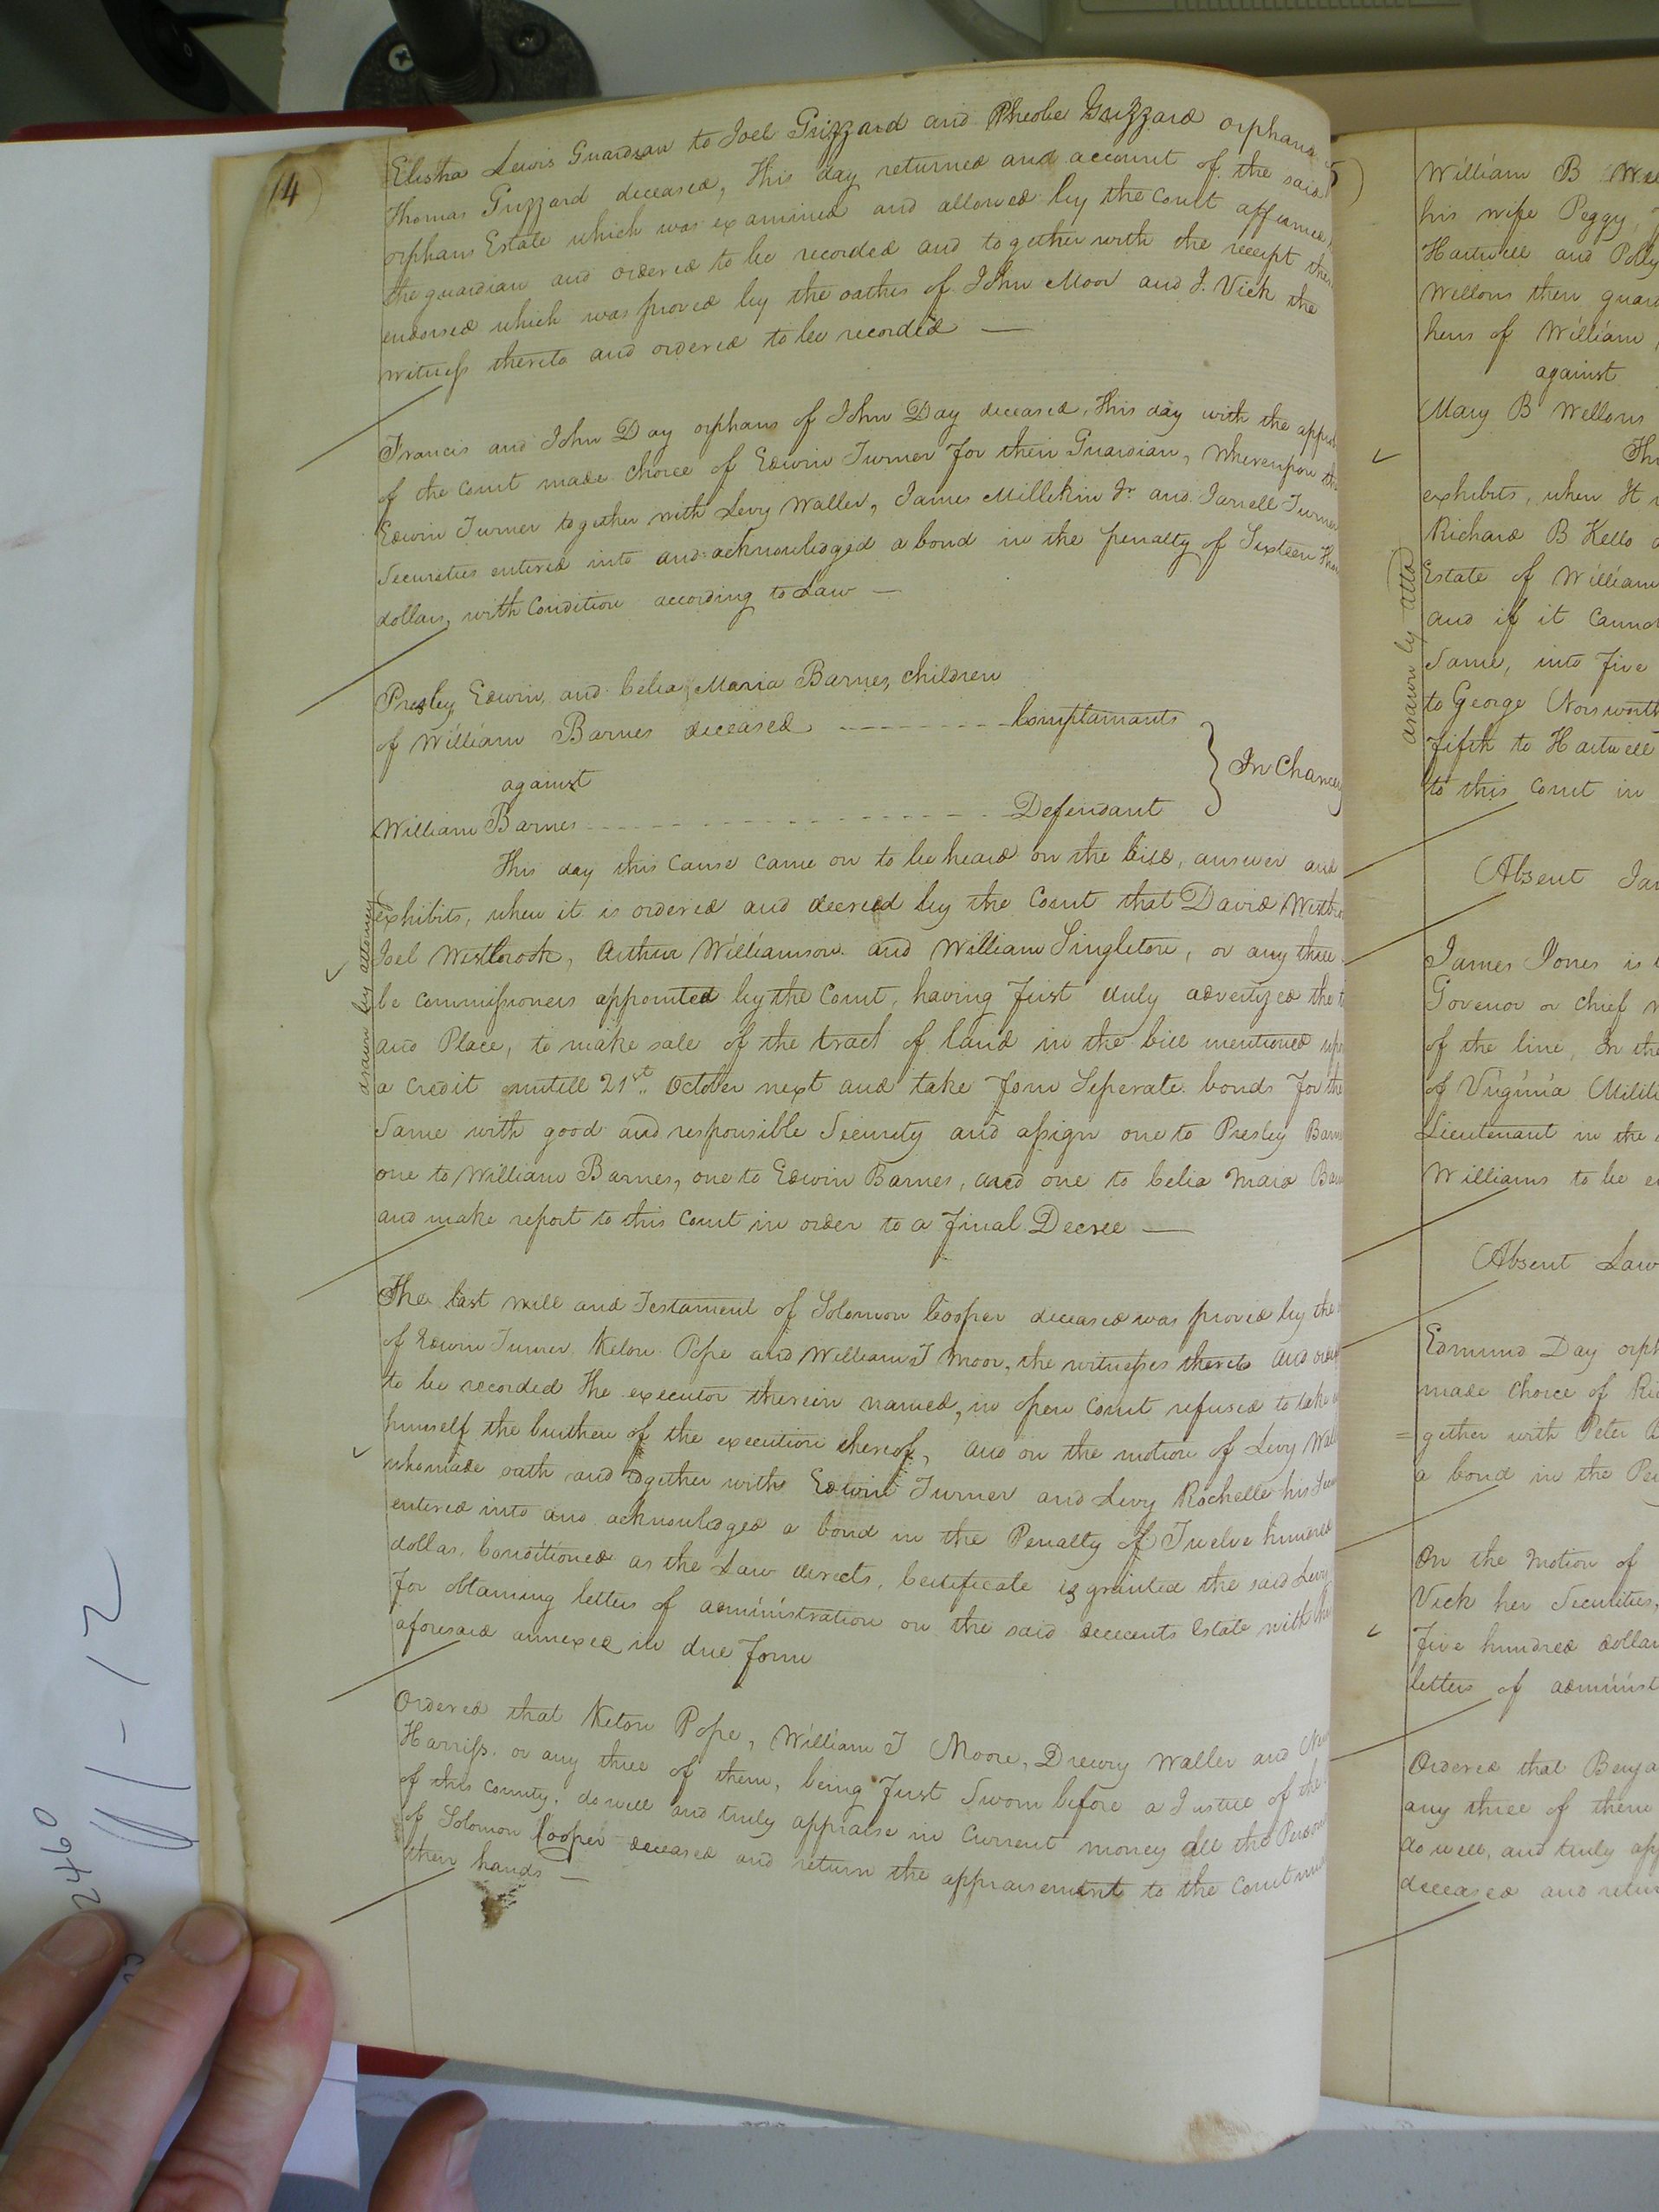 14)
Elisha Lewis Guardian to Joel Grizzard and Pheobe Grizzard orphans
Thomas Grizzard deceased, This day returned and account of the said
orphans Estate which was examined and allowed by the Court affirmed
the guardian and ordered to be recorded and together with the receipt
endorsed which was proved by the oathes of John Moor and J. Vick the
witness thereto and ordered to be recorded —
Francis and John Day orphans of John Day deceased, This day with the
of the Court made choice of Edwin Turner for their Guardian, Whereupon
Edwin Turner together with Levy Waller, James Millikin Jr and Jarrell Turner
Securities entered into and acknowledged a bond in the penalty of Sixteen
dollars, with Condition according to Law —
Presley, Edwin, and Celia Maria Barnes, children
of William Barnes deceased ---------- Complainants
against
} In Chancery
William Barnes ---------- Defendant
This day this Cause came on to be heard on the bill, answer and
exhibits, when it is ordered and decreed by the Court that David
Joel Westbrook, Arthur Williamson and William Singleton, or any three
be commissioners appointed by the Court, having first duly advertized the
and Place, to make sale of the tract of land in the bill mentioned
a Credit untill 21st October next and take four Seperate bonds for the
Same with good and responsible Security and assign one to Presley
one to William Barnes, one to Edwin Barnes, and one to Celia Maria
and make report to this Court in order to a final Decree —
drawn by attorney
The last will and Testament of Solomon Cooper deceased was proved by the
of Edwin Turner Keton Pope and William T Moor, the witnesses thereto and
to be recorded the executor therein named, in open Court refused to take
himself the burthen of the execution thereof, and on the motion of Levy
who made oath and together with Edwin Turner and Levy Rochelle his
entered into and acknowledged a bond in the Penalty of Twelve hundred
dollas, Conditioned as the Law directs, Certificate is granted the said Levy
for obtaining letters of administration on the said decedents Estate with
aforesaid annexed in due form
Ordered that Keton Pope, William T Moore, Drewry Waller and
Harriss, or any three of them, being first Sworn before a Justice of the
of this County, do well and truly appraise in Current money all the
of Solomon Cooper deceased and return the appraisement to the Court
their hands —
William B
his wife Peggy,
Hartwell and Polly
Wellons their
heirs of William
against
Mary B Wellons
exhibits, when It
Richard B Kello
Estate of William
and if it Cannot
Same, into five
to George Norsworthy
fifth to Hartwell
to this Court in
drawn by atto
Absent
James Jones is
Govenor or Chief
of the line, In the
of Virginia
Lieutenant in the
Williams to be
Absent
Edmund Day
made Choice of
gether with Peter
a bond in the
On the motion of
Vick her Securities,
five hundred dollars
letters of
Ordered that
any three of them
do well, and truly
deceased and
11-12
2460